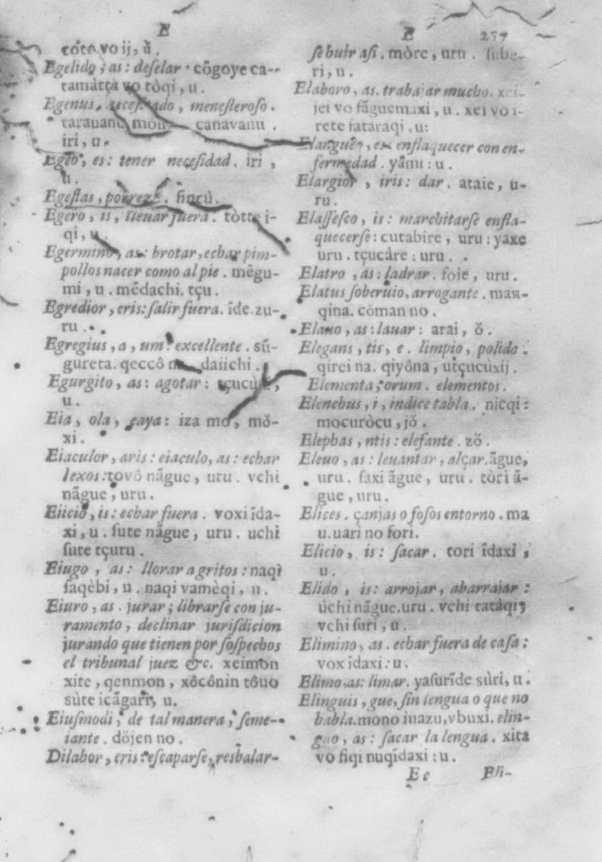 E
cōtō vo ij, ū.
Egelido, as: deſelar. cōgoye ca-
tamatta vo tòqi, u.
Egenus, neceſsitado, meneſteroſo.
canavanu.
iri, u.
Egeo, es: tener neceſidad. iri,
u.
Egeſtas, pobreza. fincū.
Egero, is, lleuar fuera. tòtte i-
qi, u.
Egermino, as: brotar, echar pim-
pollos nacer como al pie. mēgu-
mi, u. mēdachi. tçu.
Egredior, eris: ſalir fuera. īde. zu-
ru.
Egregius, a, um: excellente. sū-
gureta. qeccô daiichi.
Egurgito, as: agotar: tçucuſi,
u.
Eia, ola, eaya: iza mo, mǒ-
xi.
Eiaculor, aris: eiaculo, as: echar
lexos: tovô nāgue, uru. vchi
nāgue, uru.
Eiicio, is: echar fuera. voxi īda-
xi, u. ſute nāgue, uru. uchi
ſute tçuru.
Eiugo, as: llorar a gritos: naqi
ſaqèbi, u. naqi vamèqi, u.
Eiuro, as. jurar; librarſe con ju-
ramento, declinar juriſdicion
jurando que tienen por ſoſpechos
el tribunal juez &c. xeimon
xite, qenmon, xǒcônin tôuo
sùte icāgari, u.
Eiuſmodi, de tal manera, ſeme-
iante. dôjen no.
Dilabor, eris: eſcaparſe, resbalar-
E 257
ſe huir aſi. mòre, uru. ſube-
ri, u.
Elaboro, as. trabajar mucho. xei-
jei vo fāguemaxi, u. xei vo i-
rete fataraqi. u:
Elangueo, es enflaquecer con en-
fermedad. yāmi: u.
Elargior, iris: dar. ataie, u-
ru.
Elaſſeſco, is: marchitarſe enfla-
quecerſe: cutabire, uru: yaxe
uru. tçucâre: uru.
Elatro, as: ladrar. foie, uru.
Elatus ſoberuio, arrogante. man-
qina. cōman no.
Elauo, as: lauar: arai, ŏ.
Elegans, tis, e. limpio, polido.
qirei na. qiyôna, utçucuxij.
Elementa, orum. elementos.
Elenchus, i, indice tabla. nicqi:
mocuròcu, jǒ.
Elephas, ntis: elefante. zŏ.
Eleuo, as: leuantar, alçar. āgue,
uru. faxi āgue, uru. tòri ā-
gue, uru.
Elices. çanjas o foſos entorno. ma
u.uari no fori.
Elicio, is: ſacar. tori īdaxi,
u.
Elido, is: arrojar, abarrajar:
ùchi nāgue.uru. vchi tatàqi,
vchi furi, u.
Elimino, as. echar fuera de caſa:
vox idaxi: u.
Elimo, as: limar. yaſurīde sùri, u.
Elinguis, gue, ſin lengua o que no
habla. mono inazu, vbuxi. elin-
guo, as: ſacar la lengua. xita
vo fiqi nuqīdaxi: u.
E e Eli-